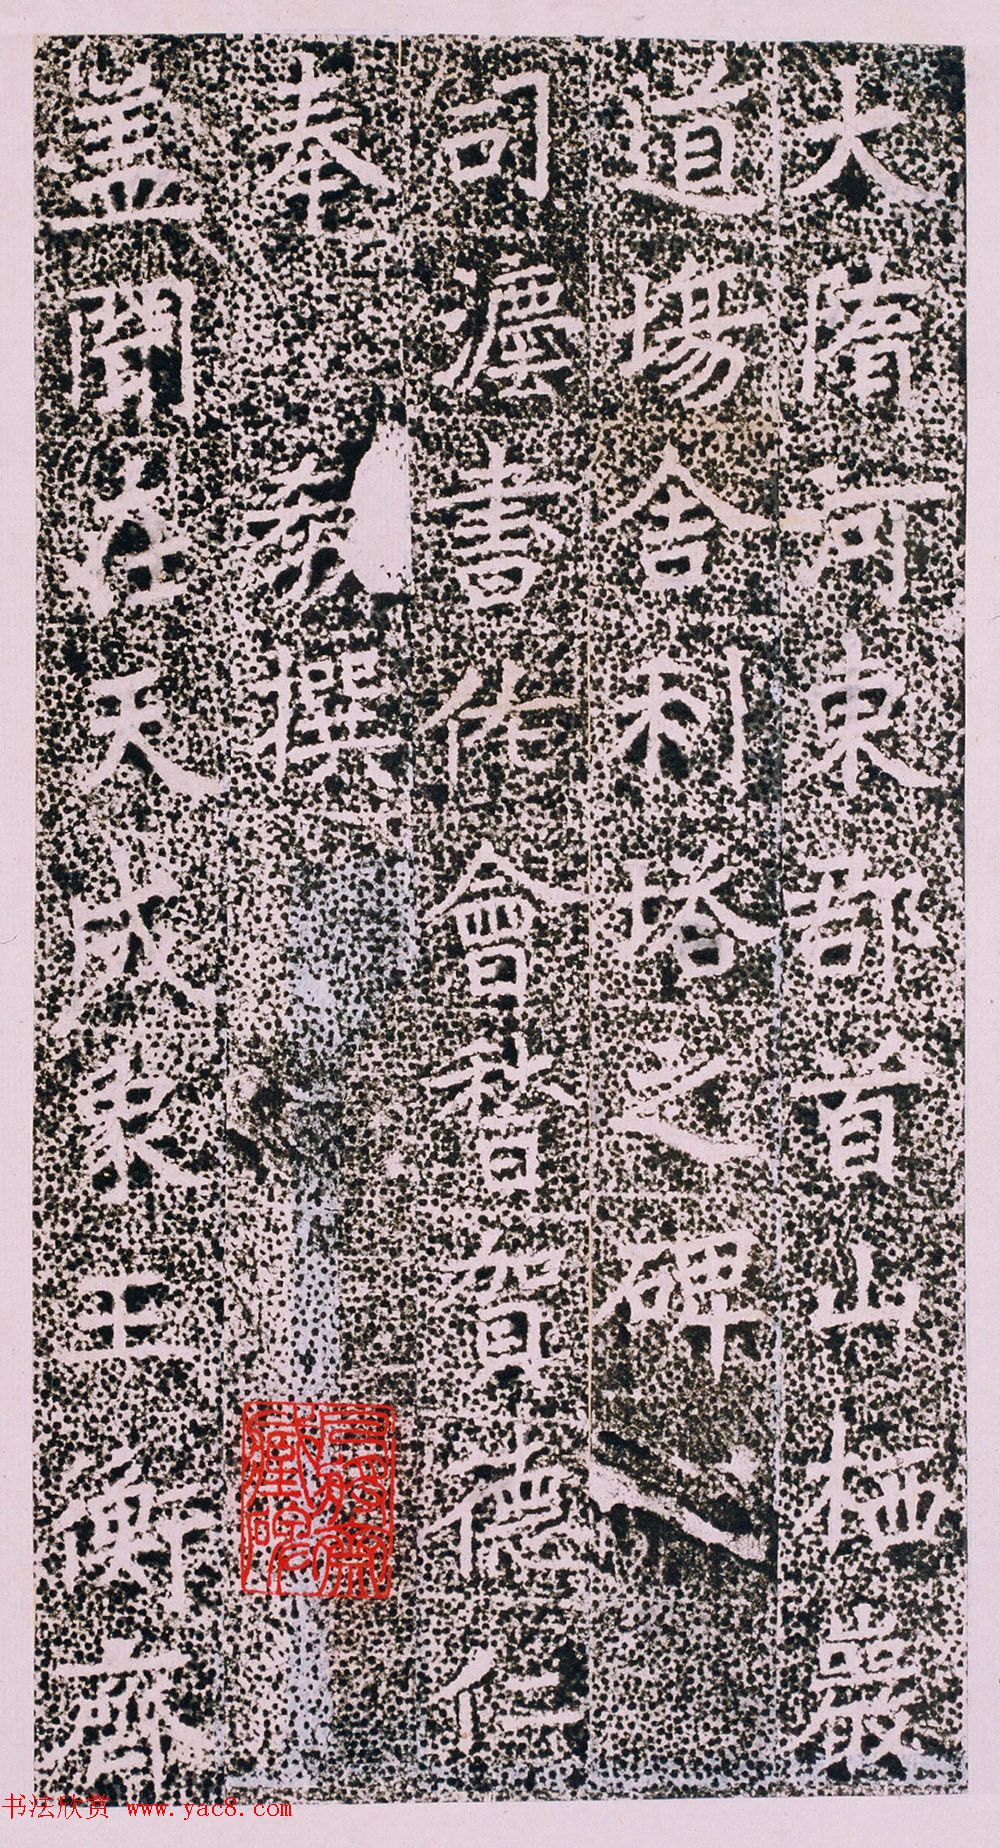 大隋河東郡首山栖巖
道場舍利塔之碑
司灋書佐會稽賀德仁
奉 敎撰
盖聞在天成象王衡齊
书法欣赏 www.yac8.com